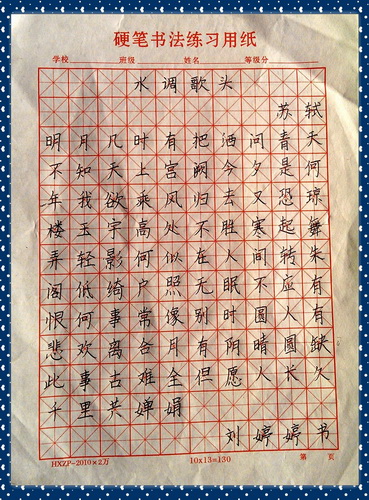 硬笔书法练习用纸
学校 班级 姓名 等级分
水调歌头
苏轼
明月几时有把酒问青天
不知天上宫阙今夕是何
年我欲乘风归去又恐琼
楼玉宇高处不胜寒起舞
弄轻影何似在人间转朱
阁低绮户照无眠不应有
恨何事常像别时圆人有
悲欢离合月有阴晴圆缺
此事古难全但愿人长久
千里共婵娟
刘婷婷书
HXZP-2010×2万 10x13=130 第 页